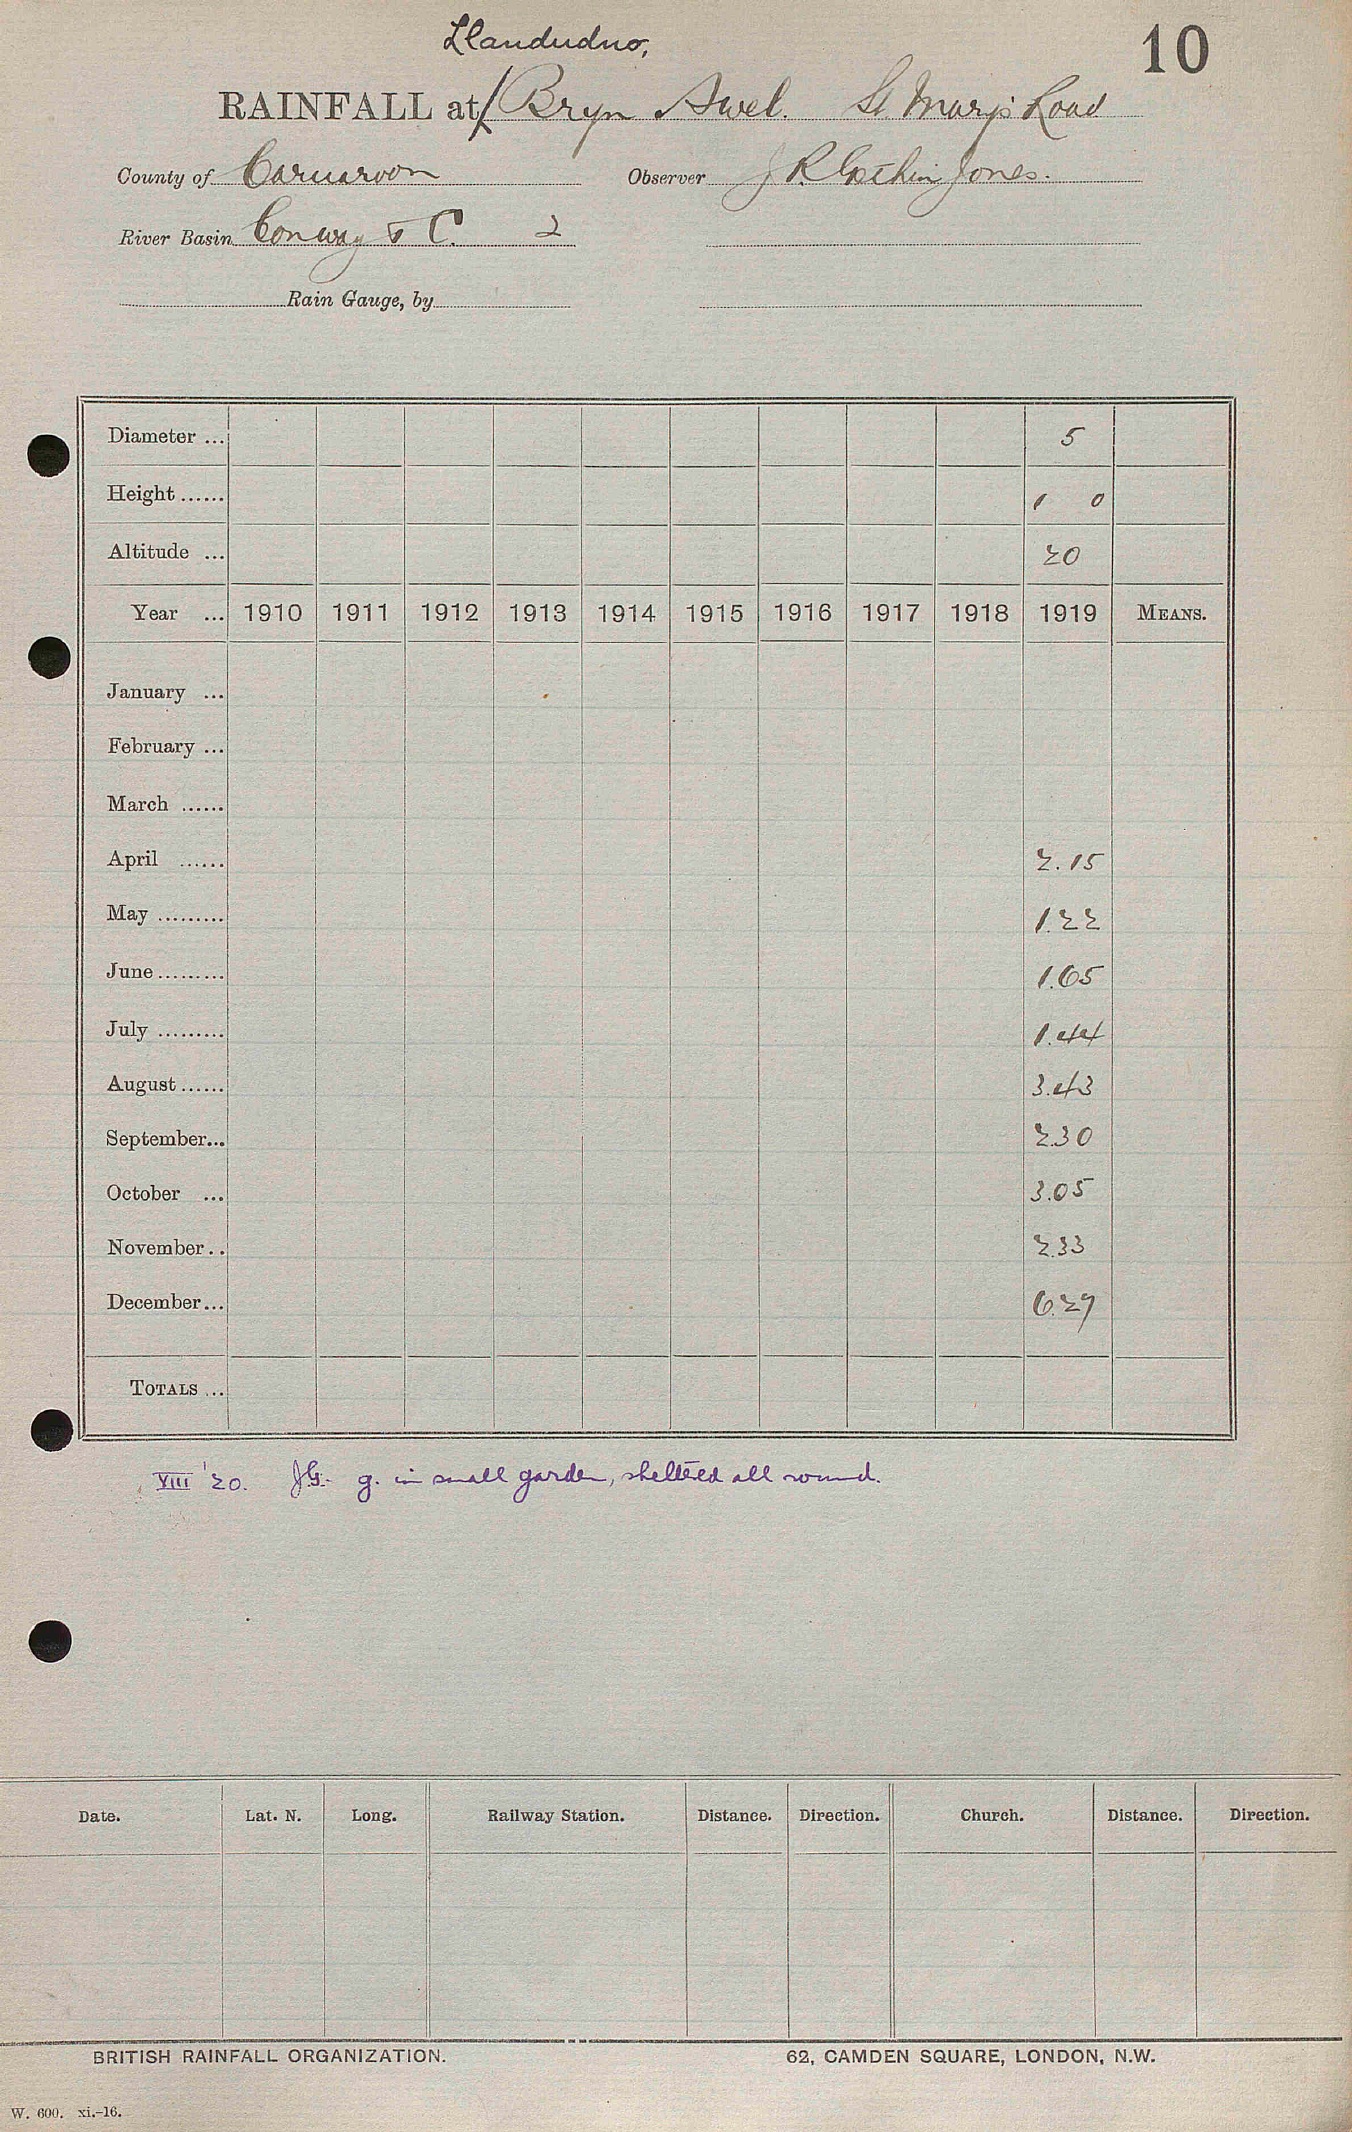 10
Llandudno,
RAINFALL at Bryn Awel. St. Mary's Road
County of Carnarvon Observer J R Gethin Jones.
River Basin Conway & C. 2
Rain Gauge, by
Diameter ... 5
Height ...... 1 0
Altitude ... 20
Year ... 1910 1911 1912 1913 1914 1915 1916 1917 1918 1919 MEANS.
January ...
February ...
March ......
April ...... 2.15
May ......... 1.22
June ......... 1.65
July ......... 1.44
August ...... 3.43
September... 2.30
October ... 3.05
November.. 2.33
December... 6.27
TOTALS ...
VIII '20. J.G. g. in small garden, sheltered all round.
Date. Lat. N. Long. Railway Station. Distance. Direction. Church. Distance. Direction.
BRITISH RAINFALL ORGANIZATION. 62, CAMDEN SQUARE, LONDON, N.W.
W. 600. xi.-16.